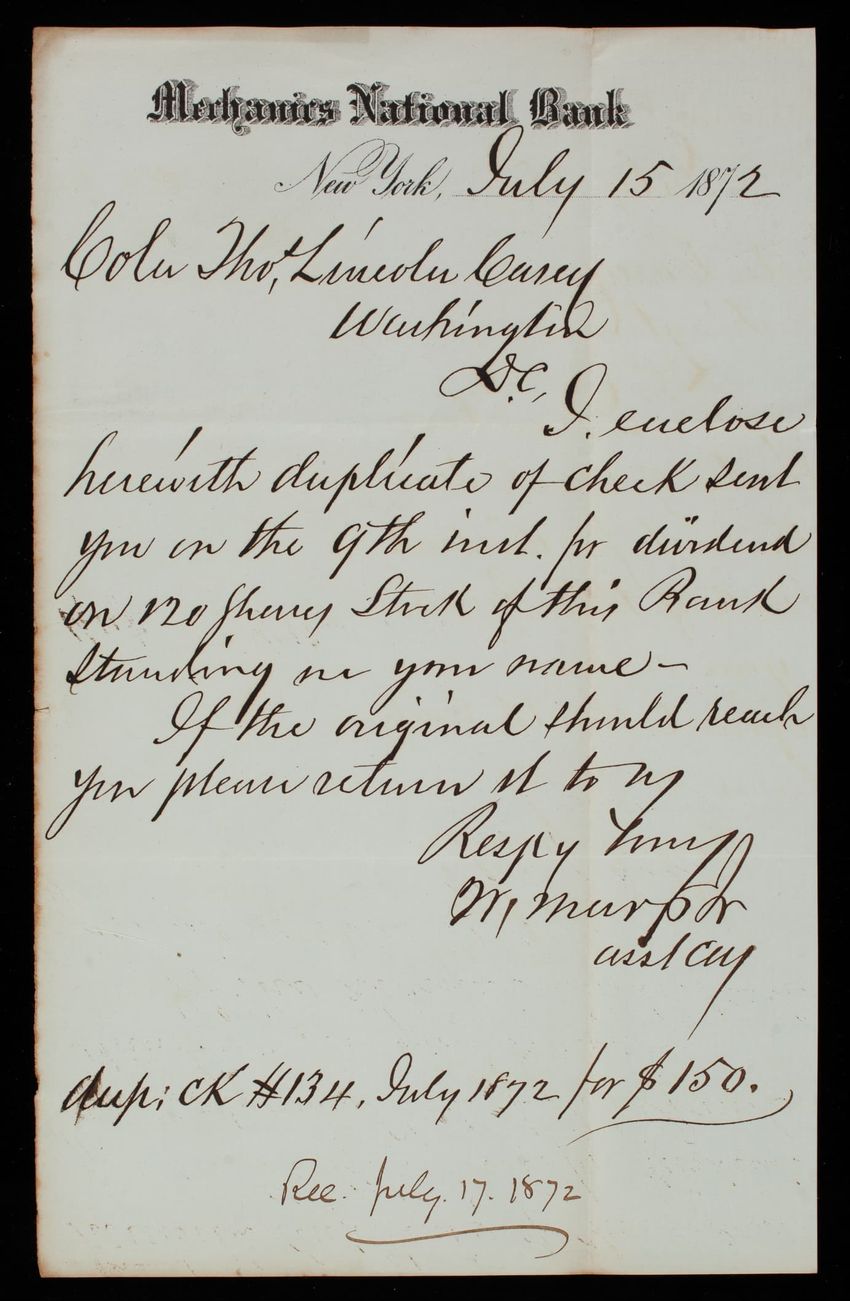 Mechanics National Bank
New York, July 15 1872
Coln Thos. Lincoln Casey
Washington
D.C.,
I enclose
herewith duplicate of check sent
you on the 9th inst. for dividend
on 120 shares Stock of this Bank
standing in your name -
If the original should reach
you please return it to us
Respy Yours
W,
asst Cas
dup: CK #134, July 1872 for $150.
Rec. July. 17. 1872